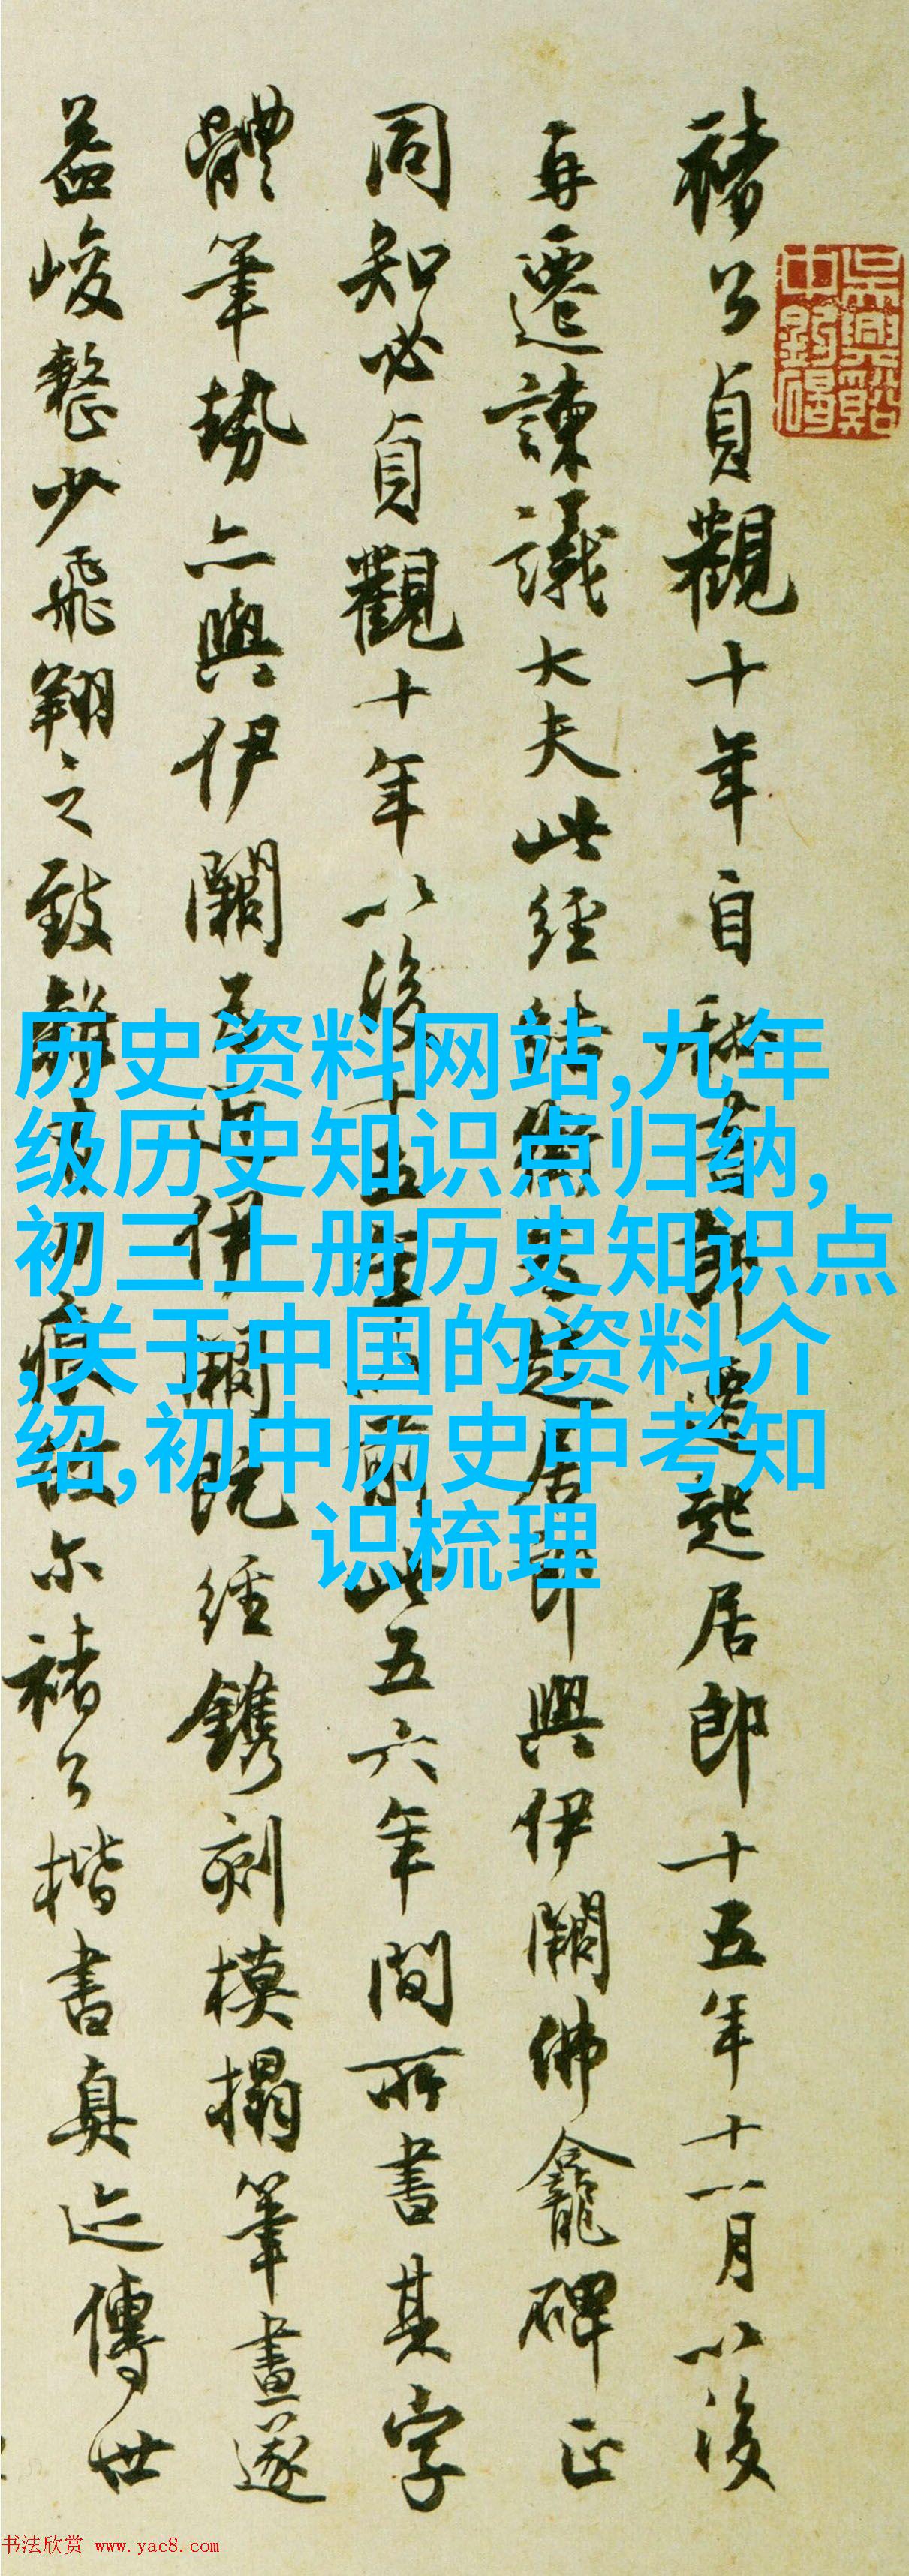 褚公貞觀十年自秘書郎遷起居郎十五年十一月以後
再遷諫議大夫此經結銜是起居郎與伊闕佛龕碑正
同知必貞觀十年以後十五年以前此五六年間所書其字
體筆勢亦與伊闕為近伊闕既經鐫刻模搨筆畫遂
益峻整少飛翔之致
尔褚公楷書真迹傳世
历史资料网站,九年
级历史知识点归纳,
初三上册历史知识点
,关于中国的资料介
绍,初中历史中考知
识梳理
书法欣赏 www.yac8.com